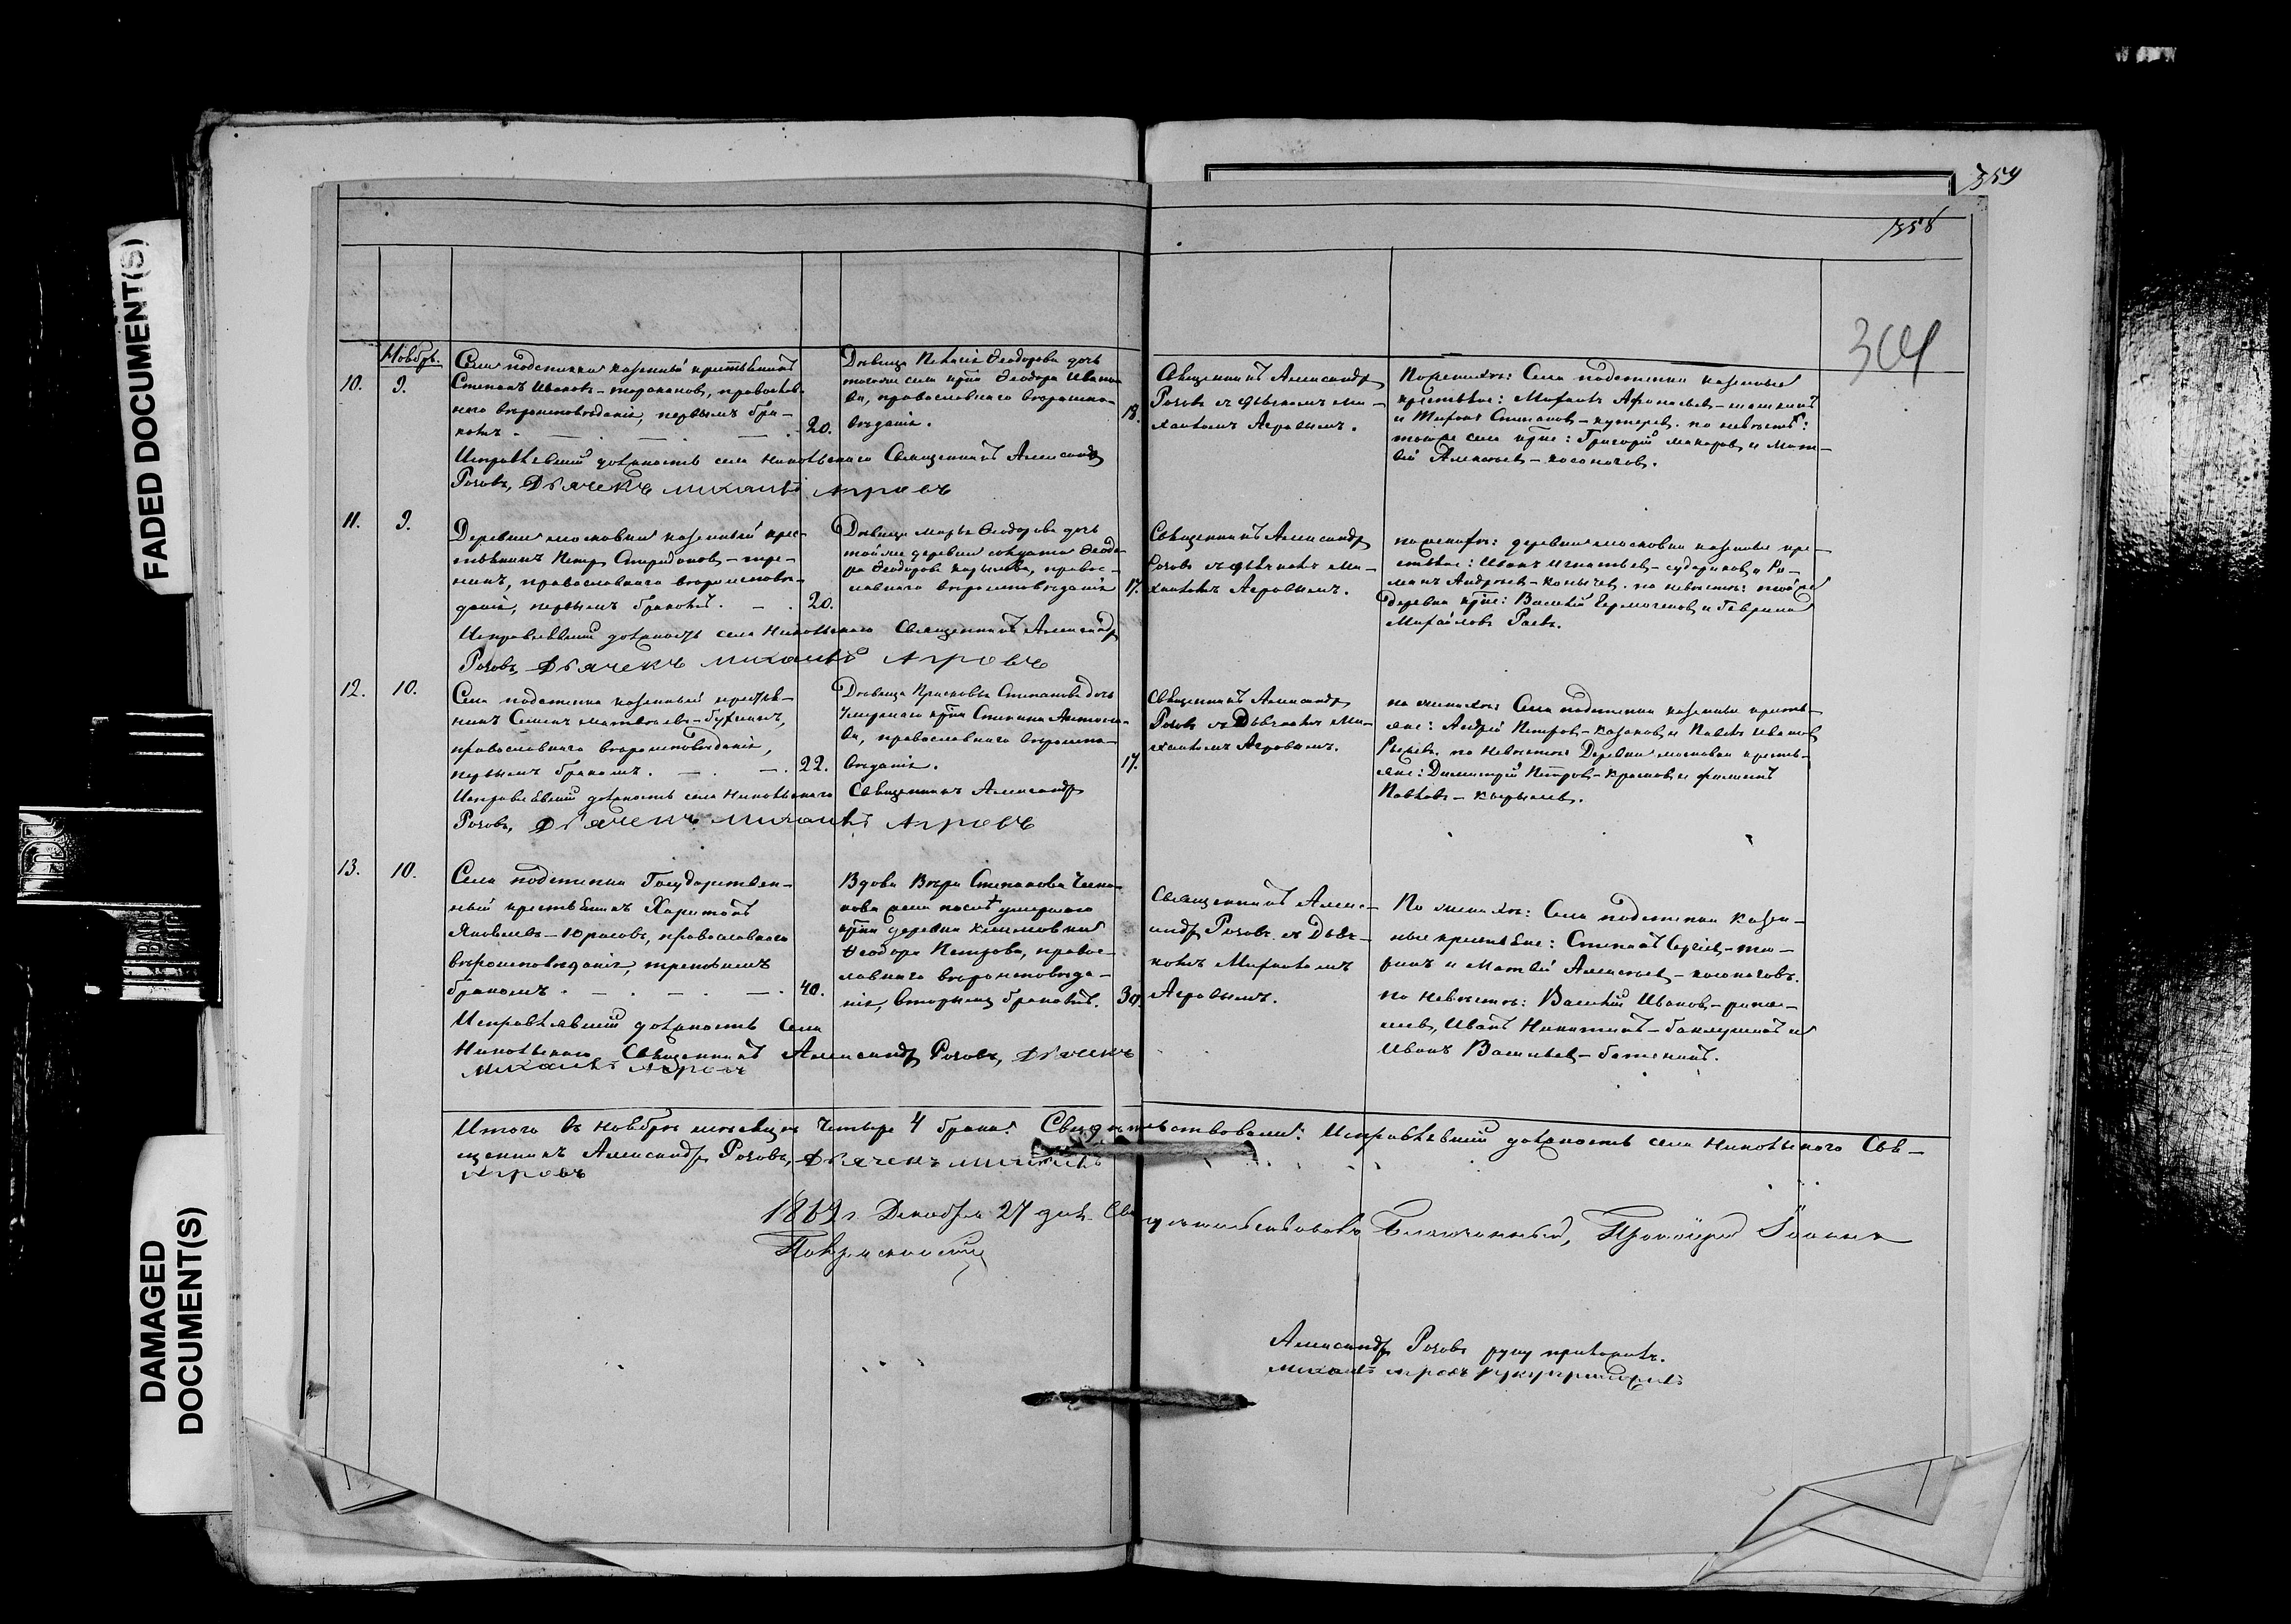 FADED DOCUMENT(S)
DAMAGED
DOCUMENT(S)
359
358
304
Ноябрь.
10. 9.
Села подстепки казенный крестьянинъ
Степанъ Ивановъ - таракановъ, православ-
наго вероисповеданія, первымъ бра-
комъ. 20.
Девица Пелагія Ѳеодорова дочь
тогоже села кр̃на Ѳеодора Ивано-
ва, православнаго вероиспо-
веданія. 18.
Священникъ Александръ
Розовъ съ дьячкомъ Ми-
хаиломъ Агровымъ.
По женихе: Села подстепки казенные
крестьяне: Михаилъ Афонасьевъ
и Степановъ. по невесте:
тогоже села кр̃не: Григорій Макаровъ и Мат-
вей Алексеевъ - косолаповъ.
Исправлявшій должность села Никольскаго Священникъ Александръ
Розовъ, Дьячекъ Михаилъ Агровъ
11. 9.
Деревни московки казенный крес-
тьянинъ Петръ Спиридоновъ
православнаго вероисповѣ-
данія, первымъ бракомъ. 20.
Девица Марья Ѳеодорова дочь
тойже деревни солдата Ѳеодо-
ра Ѳеодорова, правос-
лавнаго вероисповеданія 17.
Священникъ Александръ
Розовъ съ дьячкомъ Ми-
хаиломъ Агровымъ.
по женихе: деревни московки казенные кре-
стьяне: Иванъ Игнатьевъ - судариковъ и Ро-
манъ Андреевъ - копычевъ. по невесте: тойже
деревни кр̃не: Василій Ермогеновъ и Гаврила
Михайловъ Раевъ.
Исправлявшій должность села Никольскаго Священникъ Александръ
Розовъ, Дьячекъ Михаилъ Агровъ
12. 10.
Села подстепки казенный крестья-
нинъ Семенъ Матвеевъ
православнаго вероисповеданія,
первымъ бракомъ. 22.
Девица Прасковья Степанова дочь
умершаго кр̃на Степана Антоно-
ва, православнаго вероиспо-
веданія. 17.
Священникъ Александръ
Розовъ съ Дьячкомъ Ми-
хаиломъ Агровымъ.
по женихе: Села подстепки казенные кресть-
яне: Андрей Петровъ - Казаковъ и Павелъ Ивановъ
по невесте: Деревни московки кресть-
яне: Димитрій Петровъ - и Филиппъ
Павловъ
Исправлявшій должность села Никольскаго Священникъ Александръ
Розовъ, Дьячекъ Михаилъ Агровъ
13. 10.
Села подстепки Государствен-
ный крестьянинъ Харитонъ
Яковлевъ - Юрасовъ, православнаго
вероисповеданія, третьимъ
бракомъ. 40.
Вдова Вера Степанова
после умершаго
кр̃на деревни
Ѳеодора Петрова, правос-
лавнаго вероисповеда-
нія, вторымъ бракомъ. 39.
Священникъ Алекс-
андръ Розовъ съ Дьяч-
комъ Михаиломъ
Агровымъ.
По женихе: Села подстепки казен-
ные крестьяне: Степанъ Сергіевъ - тю-
ринъ и Матвей Алексеевъ - косолаповъ.
по невесте: Василій Ивановъ
Иванъ Никитинъ - баклушинъ и
Иванъ Васильевъ
Исправлявшій должность Села
Никольскаго Священникъ Александръ Розовъ, Дьячекъ
Михаилъ Агровъ
Итого въ ноябре месяце Четыре 4 брака. Свидетельствовали: Исправлявшій должность села Никольскаго Свя-
щенникъ Александръ Розовъ, Дьячекъ Михаилъ
Агровъ
1869 г. Декабря 27 дня. Свидетельствовалъ Благочинный, Протоіерей Іоаннъ
Александръ Розовъ руку приложилъ.
Михаилъ Агровъ руку приложилъ